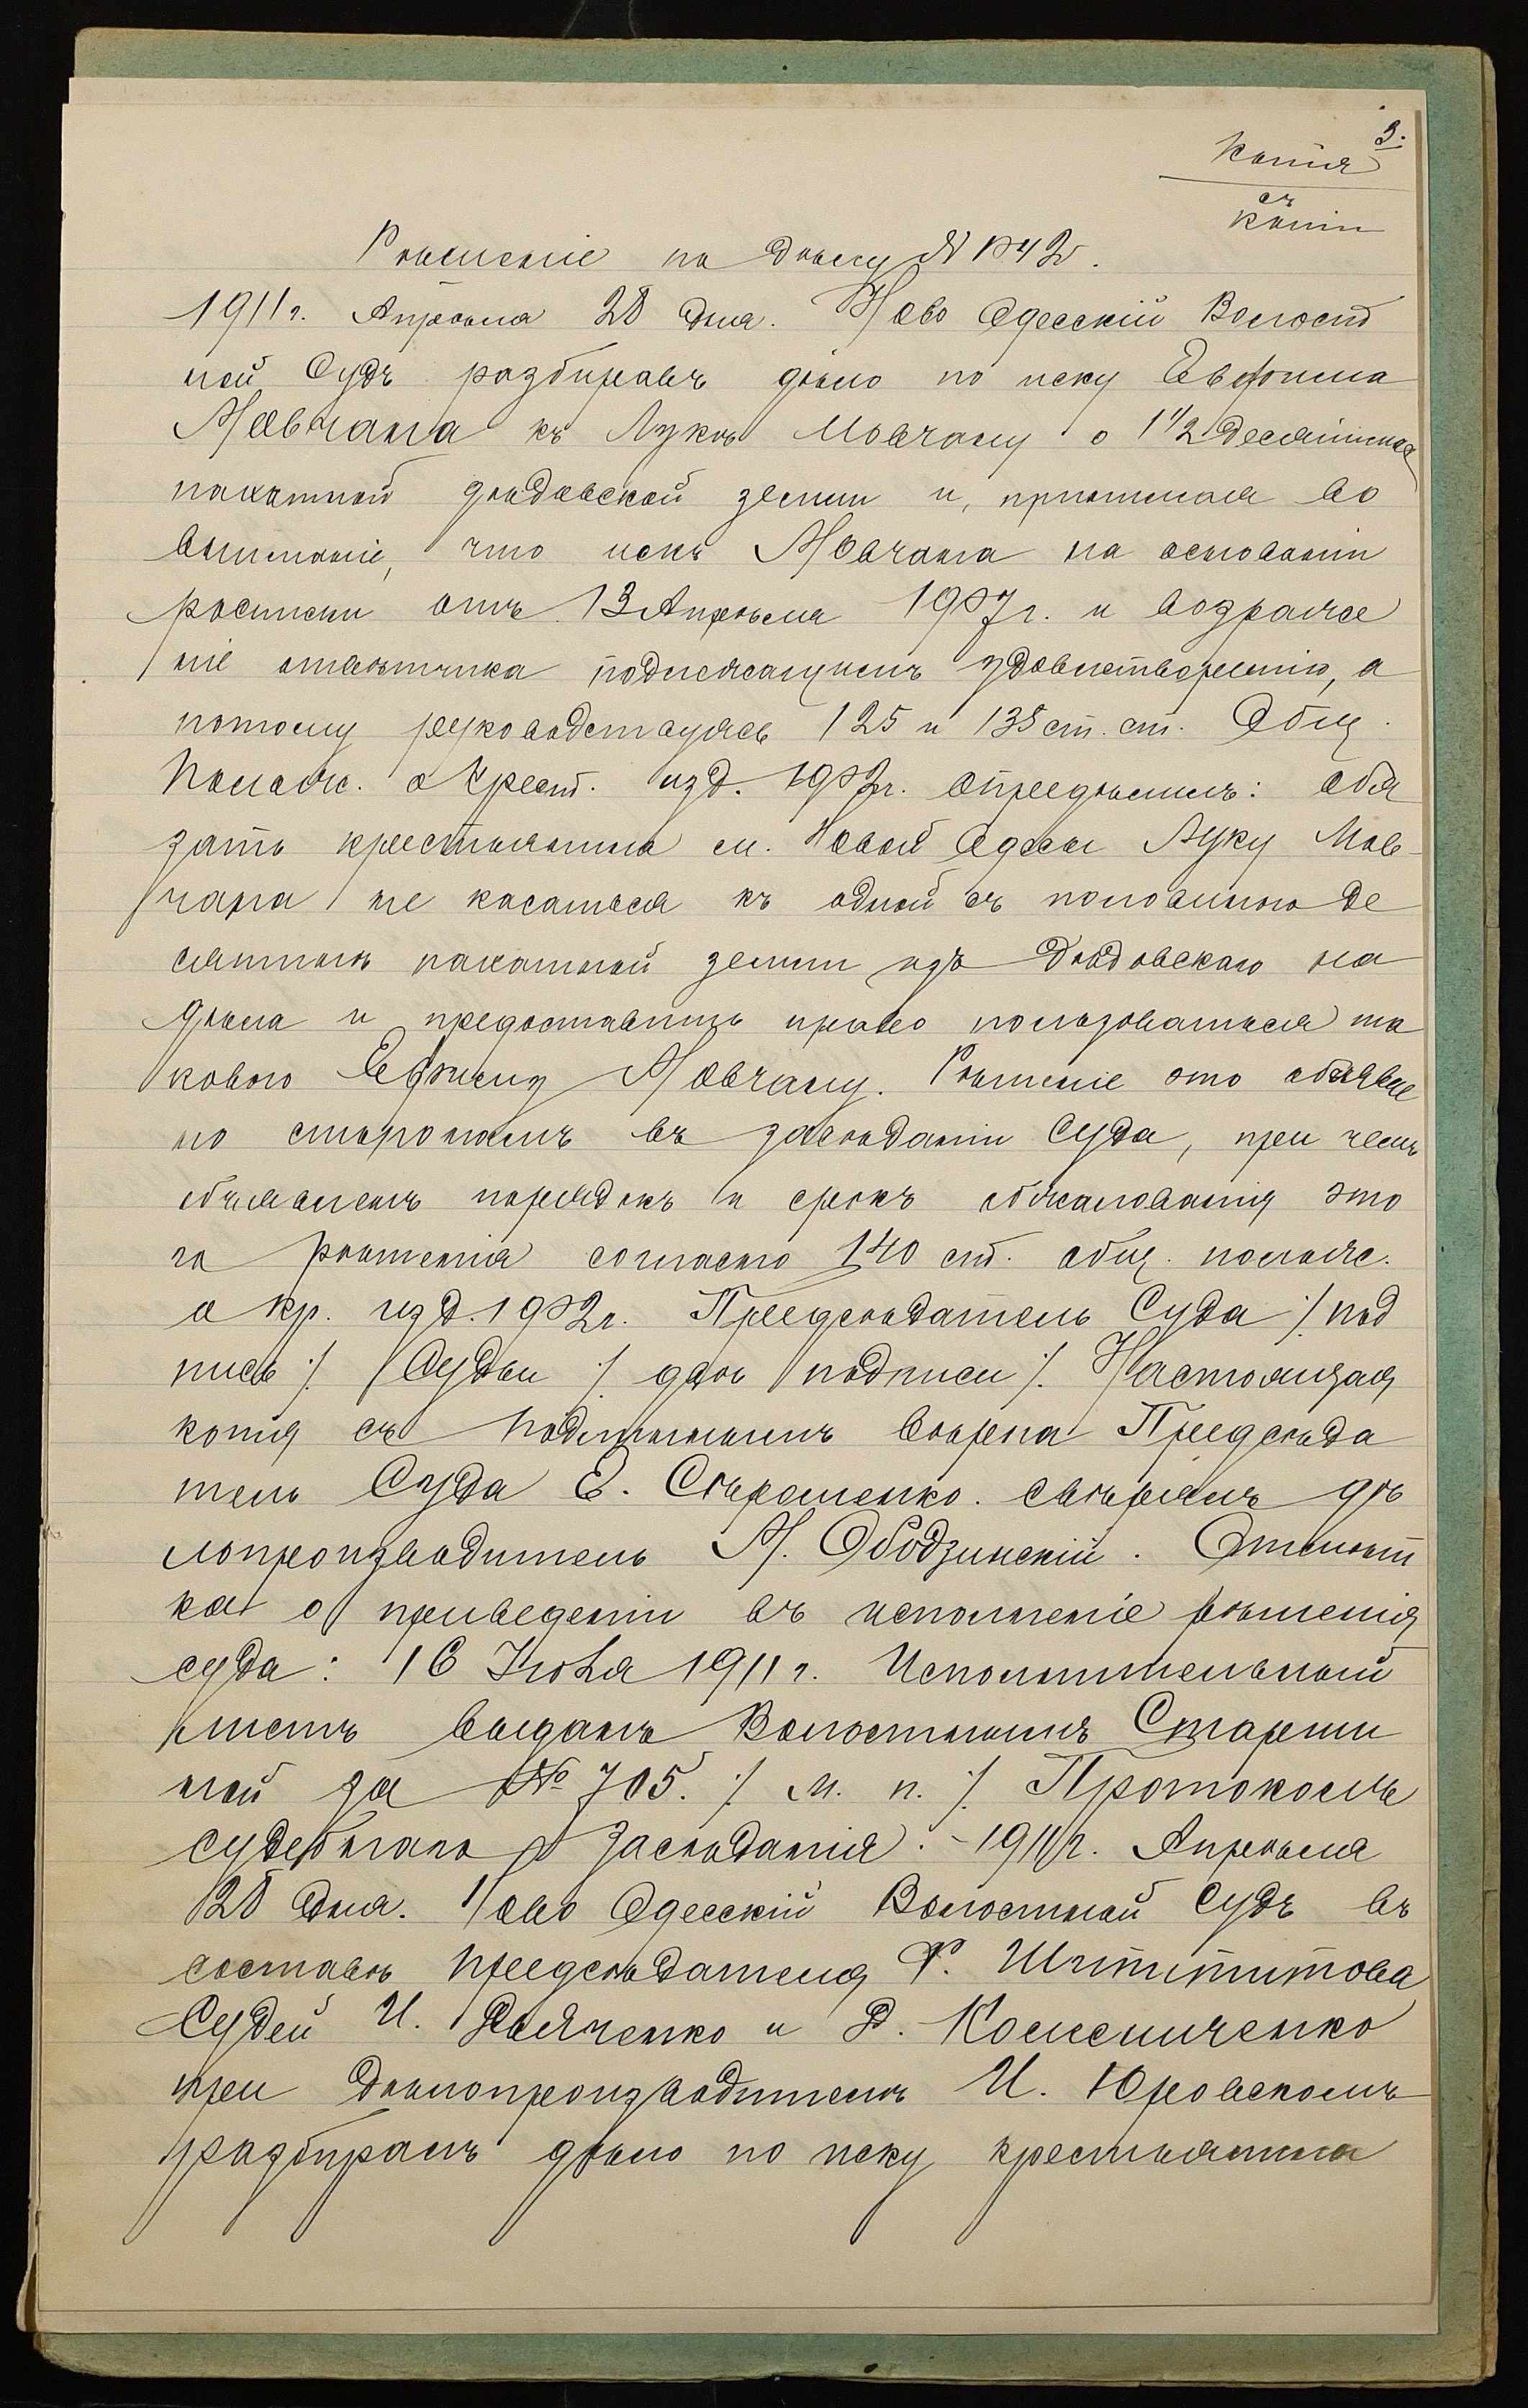 3.
Копія
съ
копіи
Рѣшеніе по дѣлу № 142.
1911 г. Апрѣля 28 дня. Ново Одесскій Волост
ной Судъ разбиравъ дѣло по иску Евфима
Мовчана къ Лукѣ Мовчану о 1 1/2 десятинахъ
пахатной дѣдовской земли и, принимая во
вниманіе, что искъ Мовчана на основаніи
росписки отъ 13 Апрѣля 1907 г. и возраже
ніе отвѣтчика подлежащимъ удовлетворенію, а
потому руководствуясь 125 и 135 ст. ст. Общ.
Полож. о Крест. изд. 1902 г. опредѣлилъ: обя
зать крестьянина м. Новой Одессы Луку Мов-
чана не касаться къ одной съ половиною де
сятинѣ пахатной земли изъ дѣдовскаго на
дѣла и предоставить право пользоваться та
ковою Ефиму Мовчану. Рѣшеніе это объявле
но сторонамъ въ засѣданіи Суда, при чемъ
объявленъ порядокъ и срокъ обжалованія это
го рѣшенія согласно 140 ст. общ. полож.
о кр. изд. 1902 г. Предсѣдатель Суда /. под
пись /. Судьи /. двѣ подписи /. Настоящая
копія съ подлиннымъ вѣрна Предсѣда
тель Суда Е. свѣрялъ дѣ
лопроизводитель М. Ободзинскій. Отмѣт
ка о приведеніи въ исполненіе рѣшенія
суда: 16 Іюля 1911 г. Исполнительный
листъ выданъ Волостнымъ Старши
ной за № 705. /. м. п. /. Протоколъ
судебнаго засѣданія. - 1911 г. Апрѣля
28 дня. Ново Одесскій Волостной Судъ въ
составѣ предсѣдателя
Судей И. Дьяченко и Д. Колесниченко
при дѣлопроизводителѣ И. Юровскомъ
разбиралъ дѣло по иску крестьянина